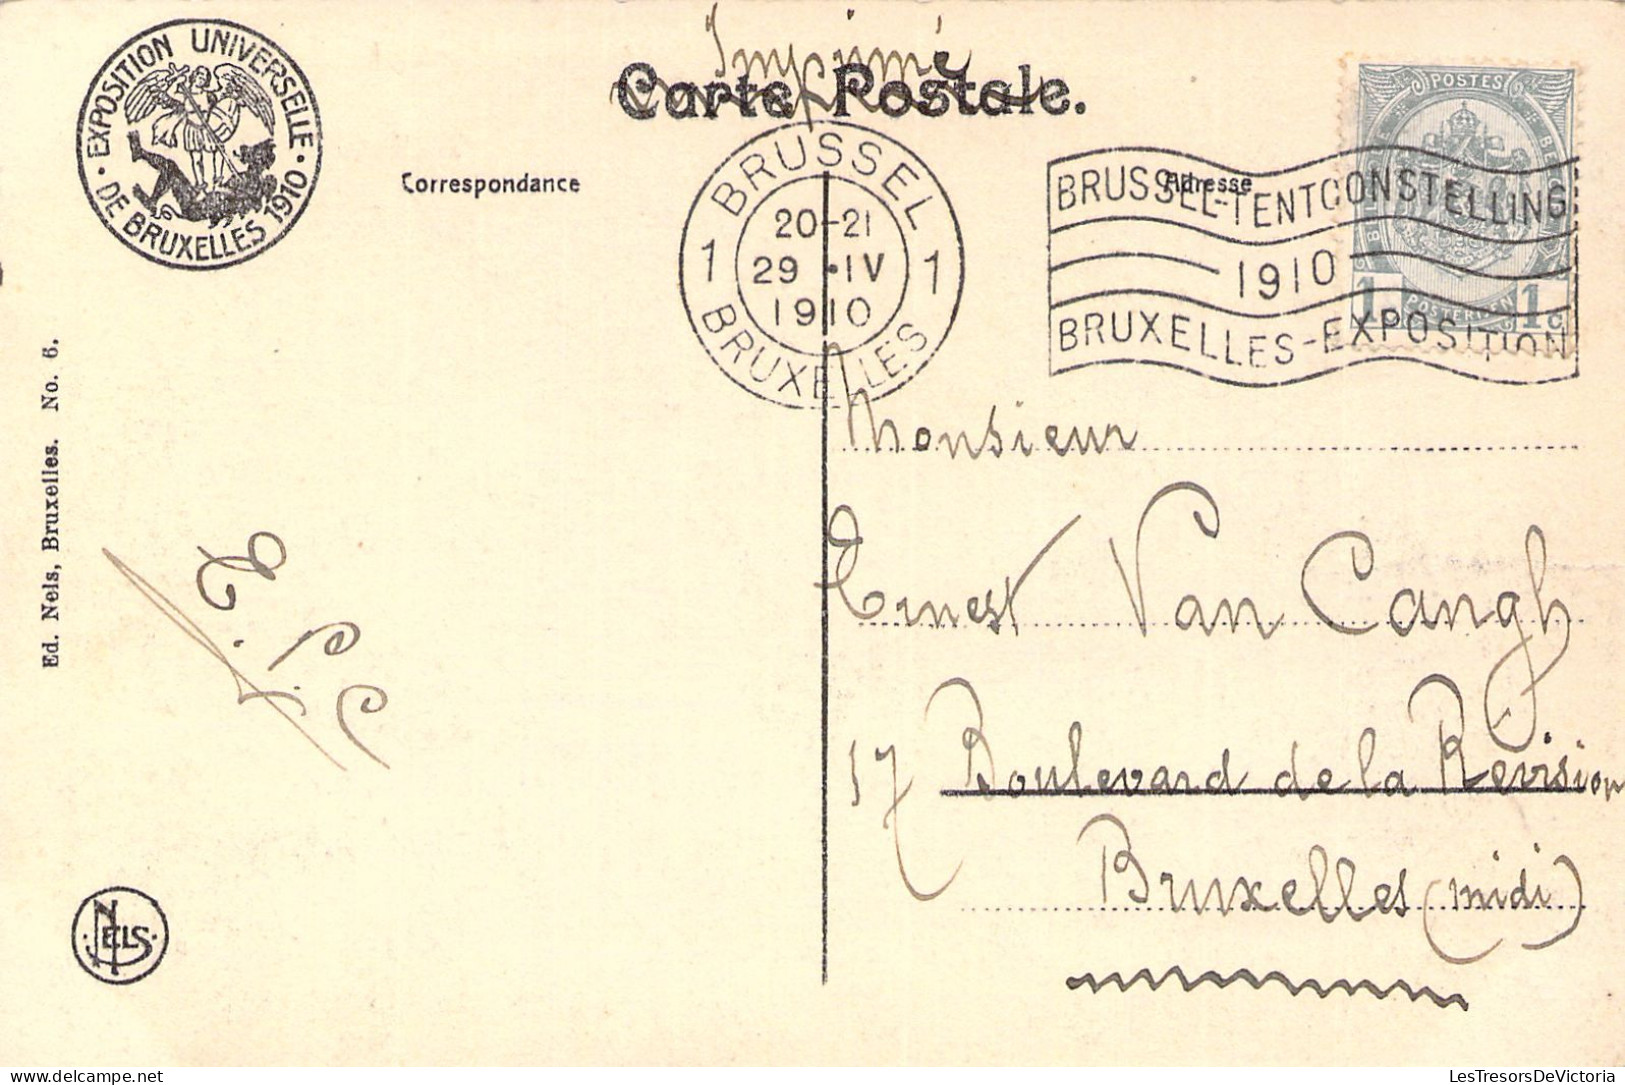 Imprimé
Carte Postale.
EXPOSITION UNIVERSELLE
DE BRUXELLES 1910
Correspondance
Adresse
BRUSSEL
1 20-21 1
29 .IV
1910
BRUXELLES
BRUSSEL-TENTOONSTELLING
1910
BRUXELLES-EXPOSITION
POSTES
BELGIQUE
BELGIE
POSTERIJEN
1c 1c
Ed. Nels, Bruxelles. No. 6.
Monsieur
Ernest Van Cangh
17 Boulevard de la Révision
Bruxelles (midi)
NELS
LesTresorsDeVictoria